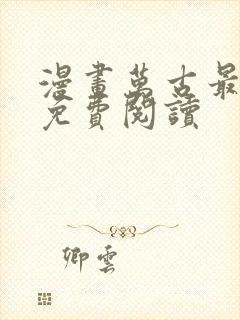 漫畫萬古最
免費閱讀
卿雲